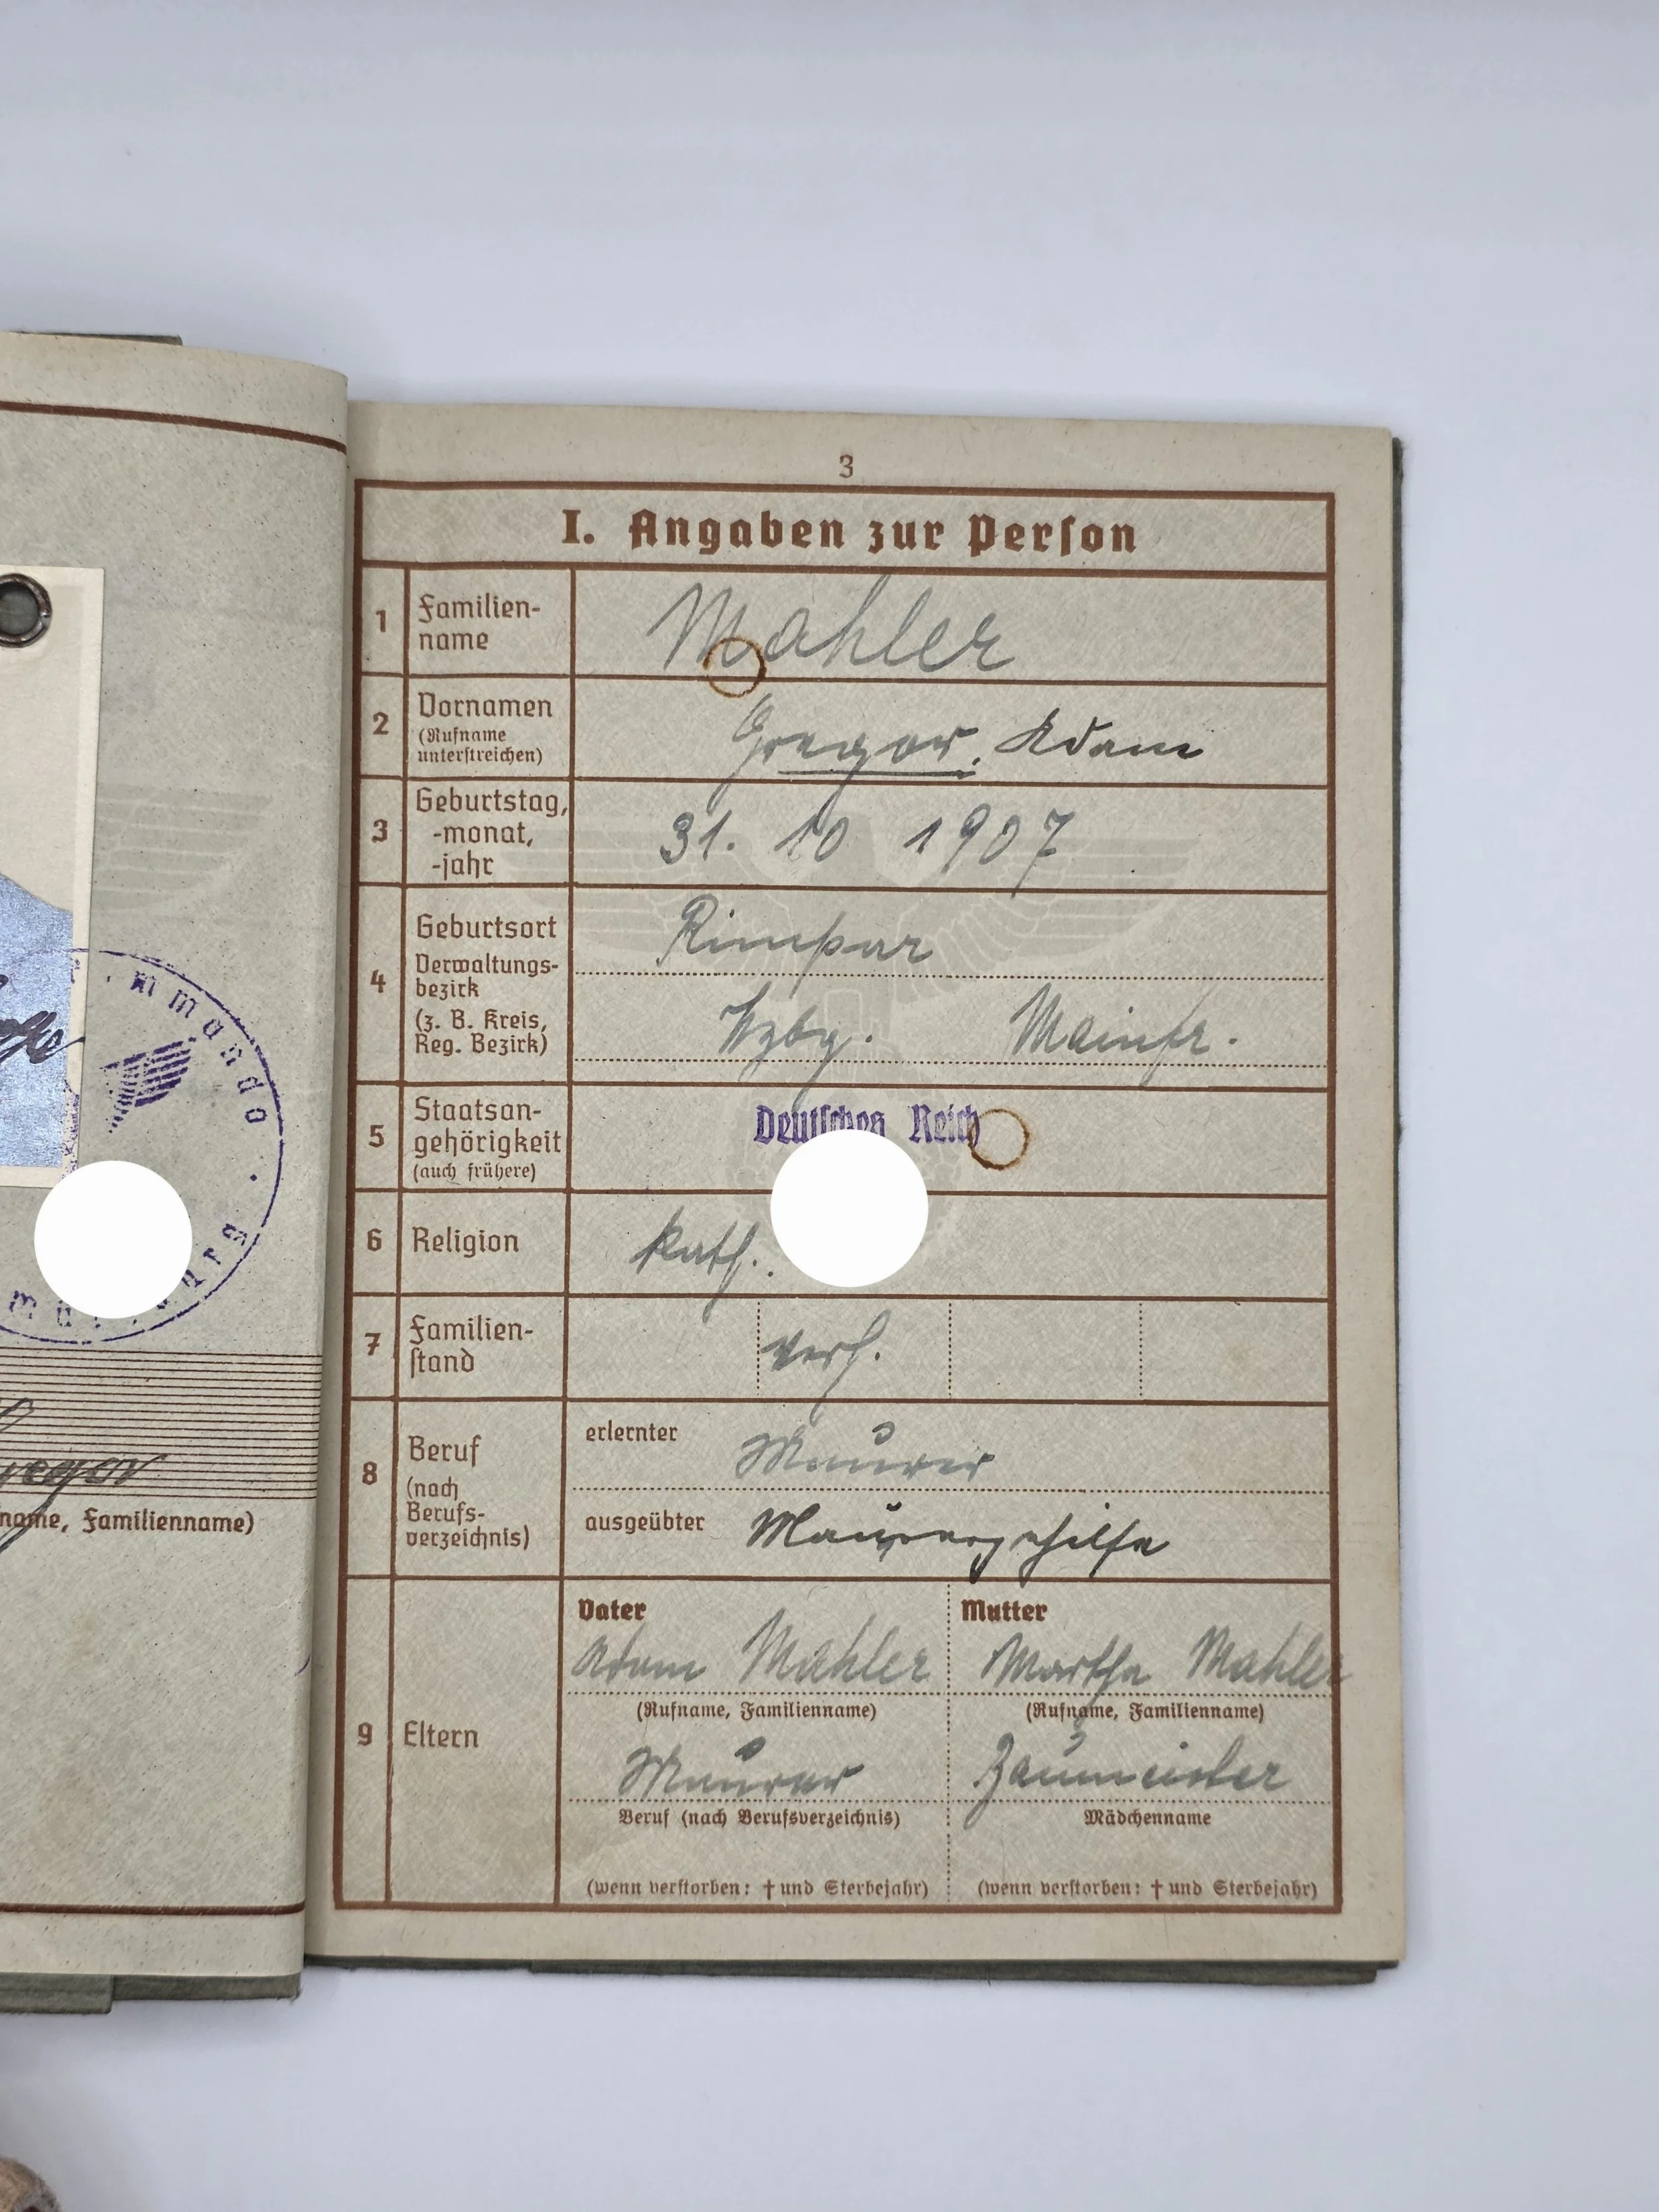 3
I. Angaben zur Perſon
1 Familien-
name
Mahler
2 Vornamen
(Rufname
unterſtreichen)
Gregor, Adam
3 Geburtstag,
-monat,
-jahr
31. 10 1907
4 Geburtsort
Verwaltungs-
bezirk
(z. B. Kreis,
Reg. Bezirk)
Rimpar
Wzbg. Mainfr.
5 Staatsan-
gehörigkeit
(auch frühere)
Deutſches Reich
6 Religion
kath.
7 Familien-
ſtand
verh.
8 Beruf
(nach
Berufs-
verzeichnis)
erlernter Maurer
ausgeübter Maurergehilfe
9 Eltern
Vater
Adam Mahler
(Rufname, Familienname)
Maurer
Beruf (nach Berufsverzeichnis)
(wenn verſtorben: † und Sterbejahr)
Mutter
Martha Mahler
(Rufname, Familienname)
Baumeister
Mädchenname
(wenn verſtorben: † und Sterbejahr)
mmando
name, Familienname)